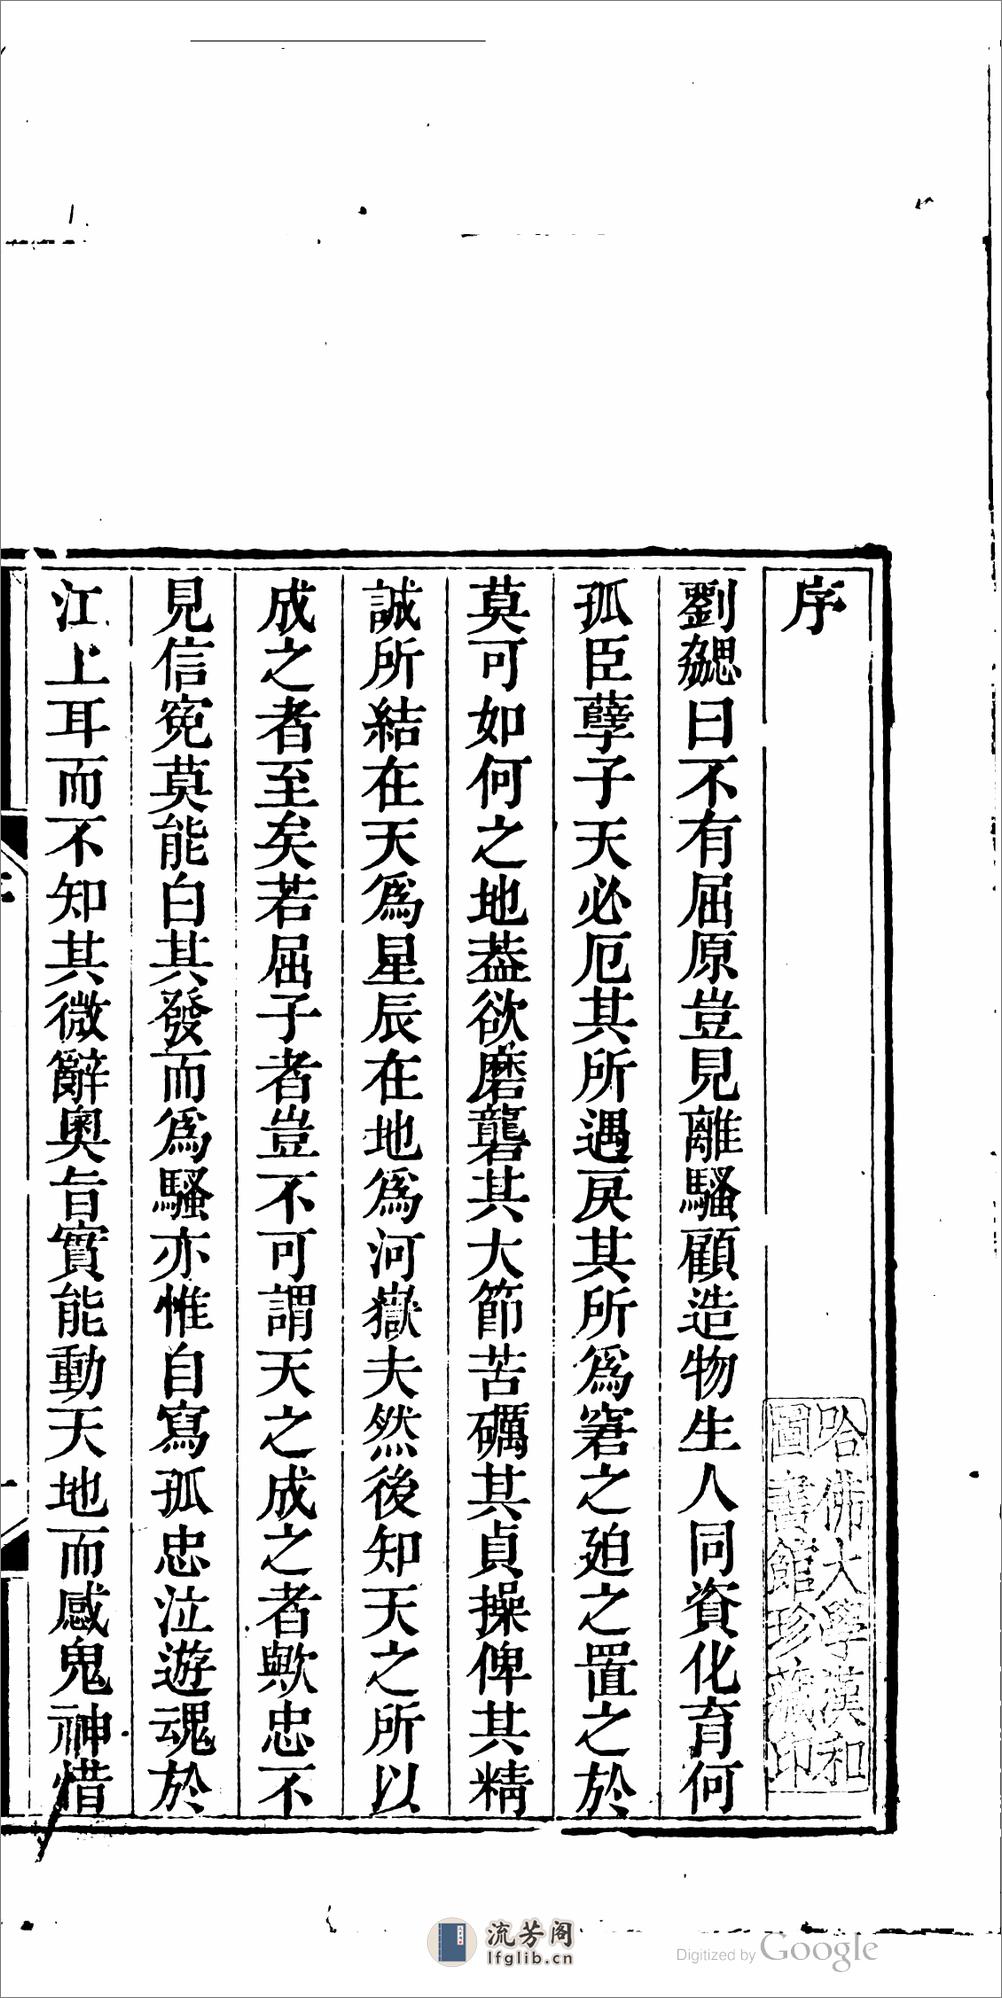 序
劉勰曰不有屈原豈見離騷顧造物生人同資化育何
孤臣孽子天必厄其所遇戾其所爲窘之廹之置之於
莫可如何之地葢欲磨礱其大節苦礪其貞操俾其精
誠所結在天爲星辰在地爲河嶽夫然後知天之所以
成之者至矣若屈子者豈不可謂天之成之者歟忠不
見信寃莫能白其發而爲騷亦惟自寫孤忠泣遊魂於
江上耳而不知其微辭奧旨實能動天地而感鬼神惜
哈佛大學漢和
圖書館珍藏印
流芳阁
lfglib.cn
Digitized by Google